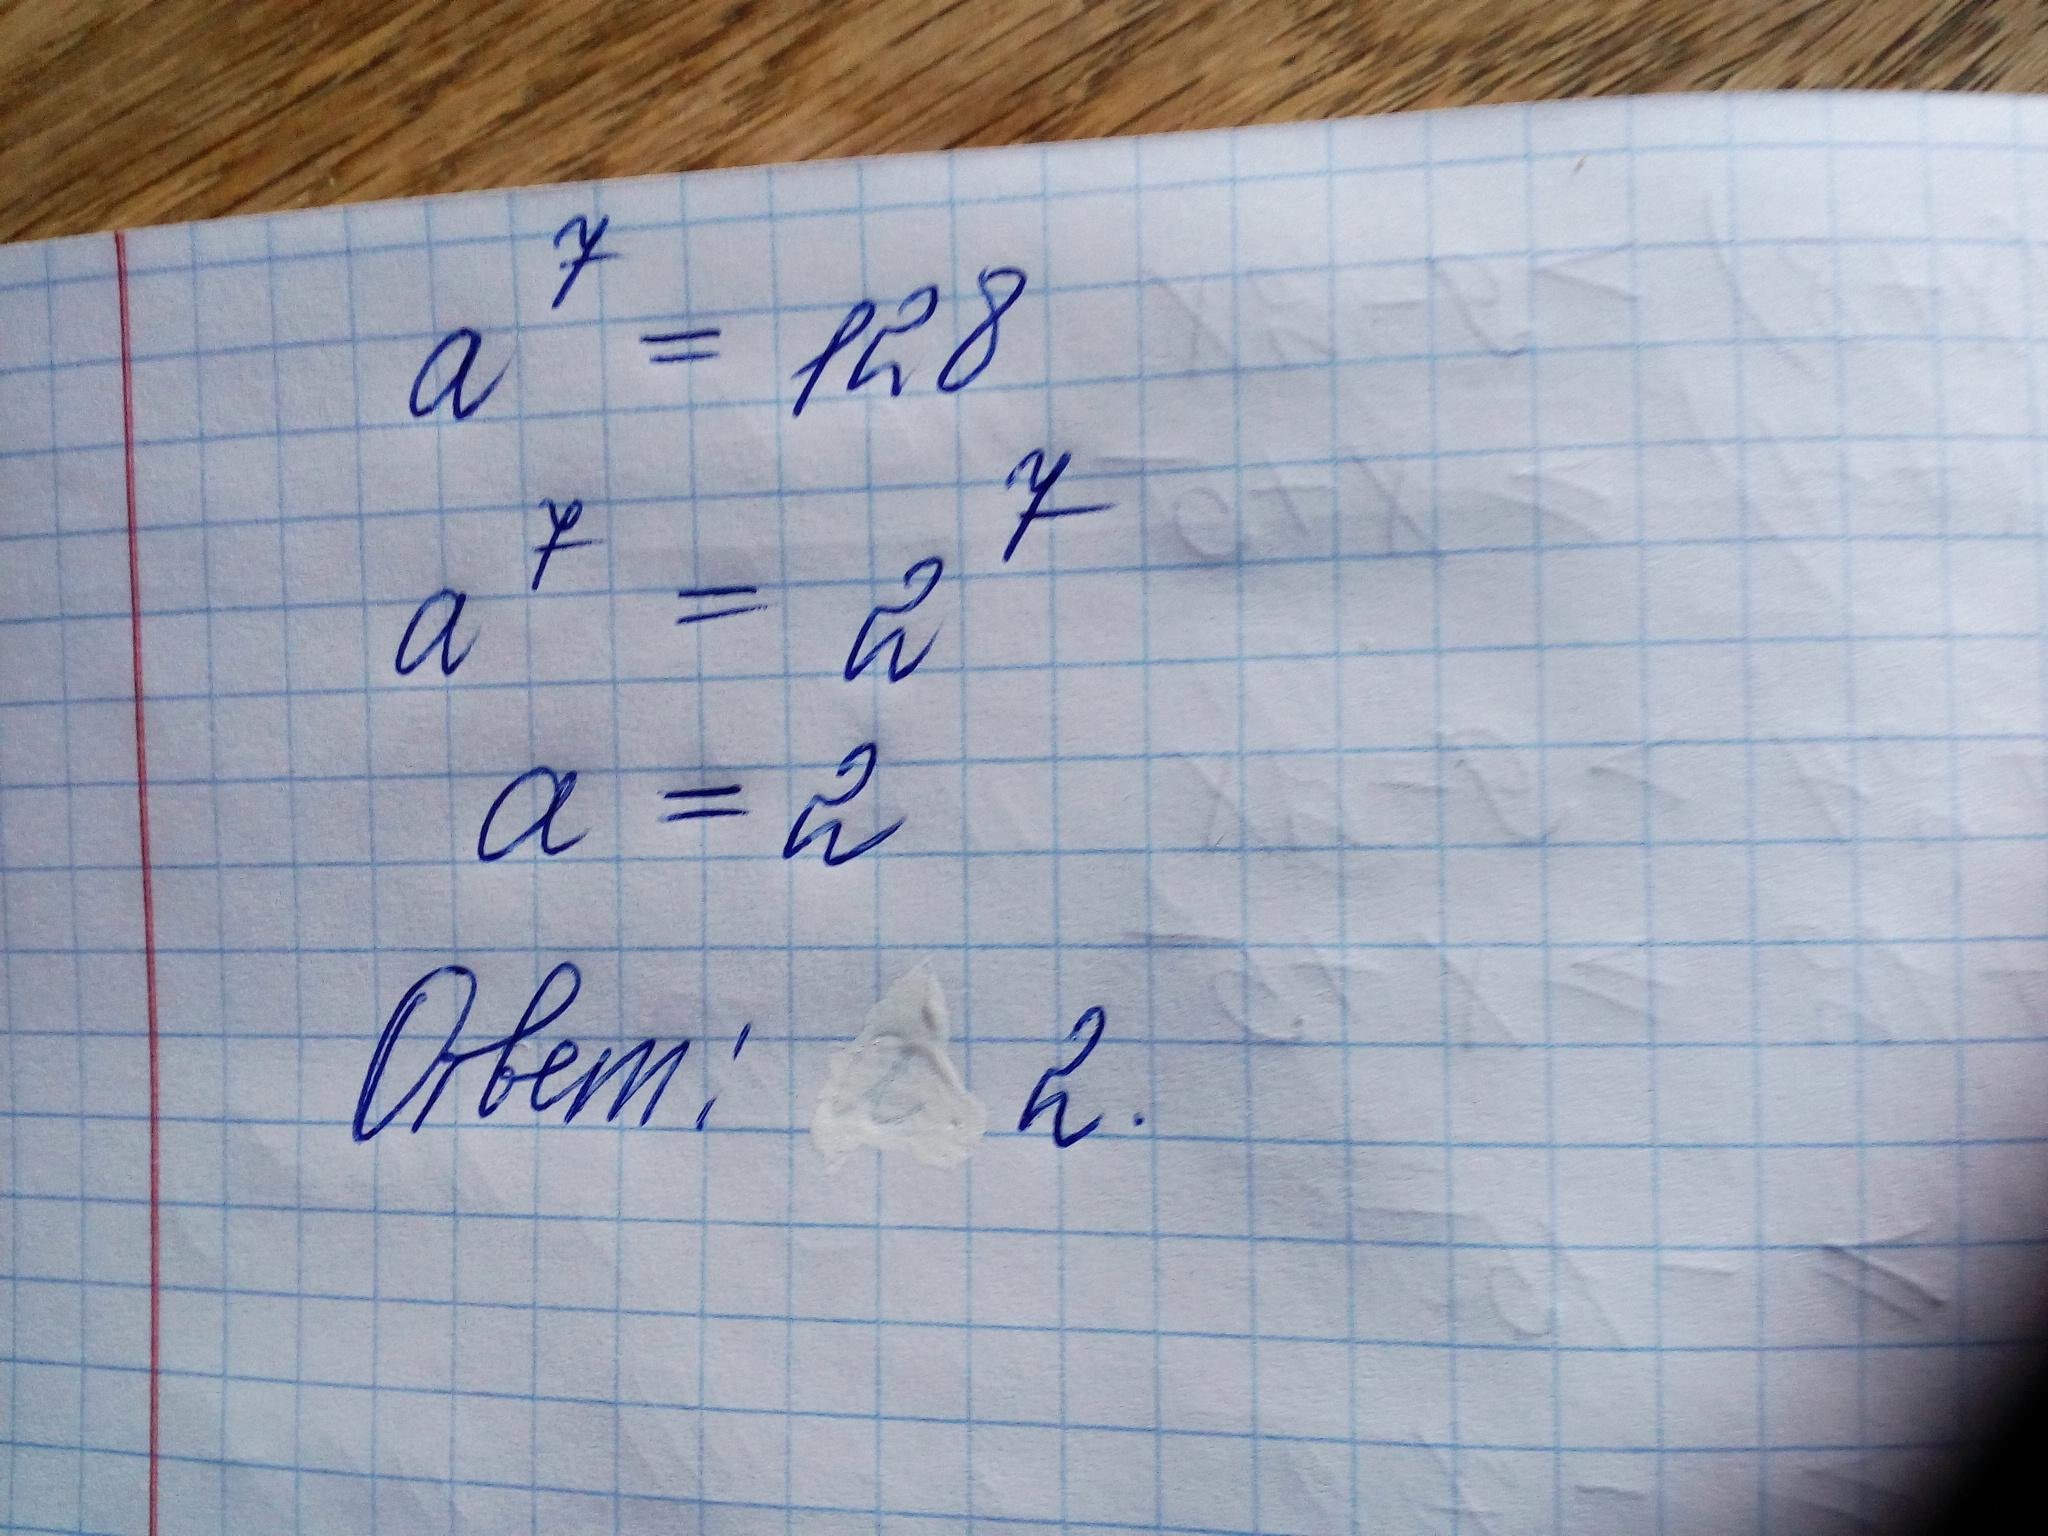 a⁷ = 128
a⁷ = 2⁷
a = 2
Ответ: 2.